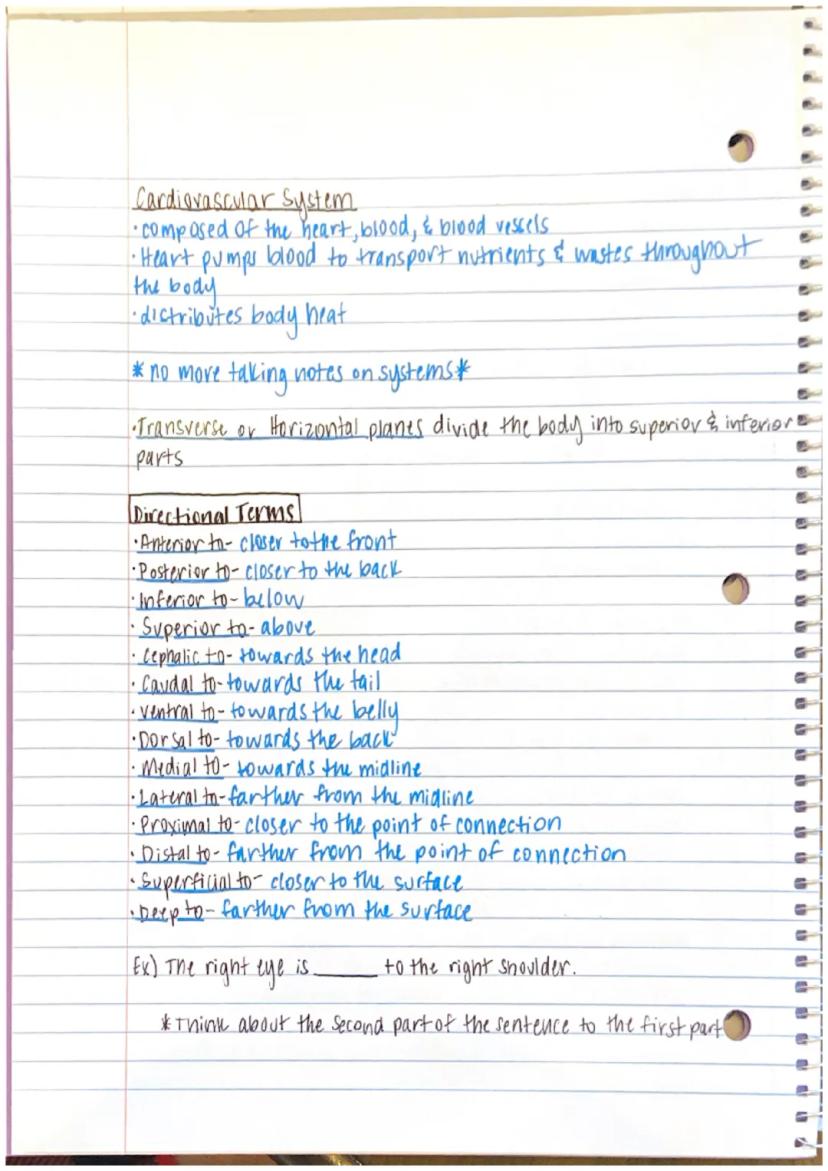 Cardiovascular System
·composed of the heart, blood, & blood vessels
·Heart pumps blood to transport nutrients & wastes throughout
the body
·distributes body heat
*no more taking notes on systems*
·Transverse or Horizontal planes divide the body into superior & inferior
parts
Directional Terms
·Anterior to- closer to the front
·Posterior to- closer to the back
·Inferior to- below
·Superior to- above
·Cephalic to- towards the head
·Caudal to- towards the tail
·Ventral to- towards the belly
·Dorsal to- towards the back
·Medial to- towards the midline
·Lateral to- farther from the midline
·Proximal to- closer to the point of connection
·Distal to- farther from the point of connection
·Superficial to- closer to the surface
·Deep to- farther from the surface
Ex) The right eye is ____ to the right shoulder.
*Think about the second part of the sentence to the first part